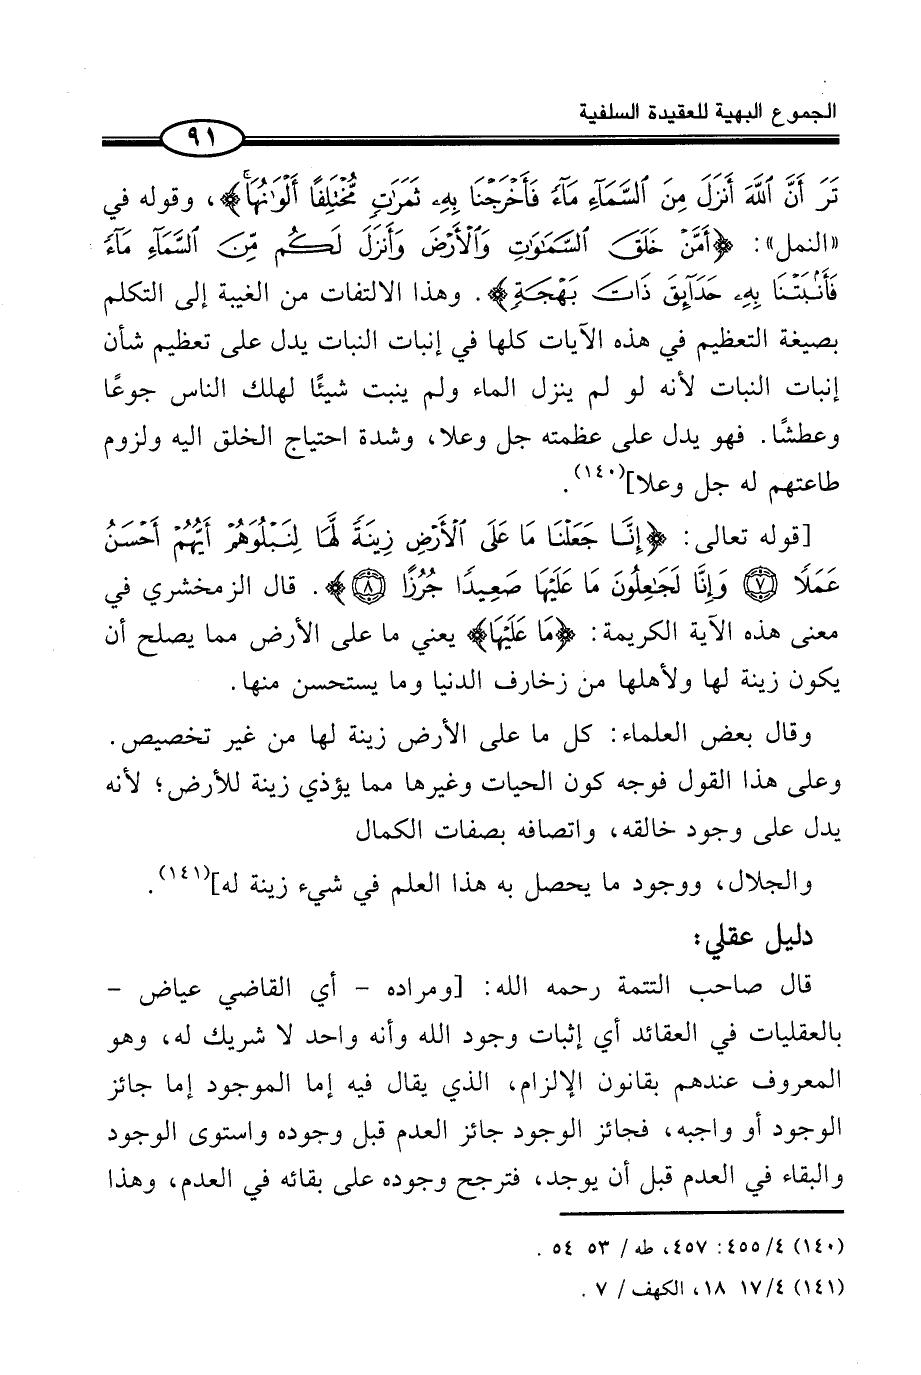 الجموع البهية للعقيدة السلفية
٩١
تَرَ أَنَّ ٱللَّهَ أَنزَلَ مِنَ ٱلسَّمَآءِ مَآءً فَأَخْرَجْنَا بِهِۦ ثَمَرَٰتٍ مُّخْتَلِفًا أَلْوَٰنُهَاۚ﴾، وقوله في
«النمل»: ﴿أَمَّنْ خَلَقَ ٱلسَّمَٰوَٰتِ وَٱلْأَرْضَ وَأَنزَلَ لَكُم مِّنَ ٱلسَّمَآءِ مَآءً
فَأَنۢبَتْنَا بِهِۦ حَدَآئِقَ ذَاتَ بَهْجَةٍ﴾. وهذا الالتفات من الغيبة إلى التكلم
بصيغة التعظيم في هذه الآيات كلها في إنبات النبات يدل على تعظيم شأن
إنبات النبات لأنه لو لم ينزل الماء ولم ينبت شيئًا لهلك الناس جوعًا
وعطشًا. فهو يدل على عظمته جل وعلا، وشدة احتياج الخلق اليه ولزوم
طاعتهم له جل وعلا](١٤٠).
[قوله تعالى: ﴿إِنَّا جَعَلْنَا مَا عَلَى ٱلْأَرْضِ زِينَةً لَّهَا لِنَبْلُوَهُمْ أَيُّهُمْ أَحْسَنُ
عَمَلًا ٧ وَإِنَّا لَجَٰعِلُونَ مَا عَلَيْهَا صَعِيدًا جُرُزًا ٨﴾. قال الزمخشري في
معنى هذه الآية الكريمة: ﴿مَا عَلَيْهَا﴾ يعني ما على الأرض مما يصلح أن
يكون زينة لها ولأهلها من زخارف الدنيا وما يستحسن منها.
وقال بعض العلماء: كل ما على الأرض زينة لها من غير تخصيص.
وعلى هذا القول فوجه كون الحيات وغيرها مما يؤذي زينة للأرض؛ لأنه
يدل على وجود خالقه، واتصافه بصفات الكمال
والجلال، ووجود ما يحصل به هذا العلم في شيء زينة له](١٤١).
دليل عقلي:
قال صاحب التتمة رحمه الله: [ومراده - أي القاضي عياض -
بالعقليات في العقائد أي إثبات وجود الله وأنه واحد لا شريك له، وهو
المعروف عندهم بقانون الإلزام، الذي يقال فيه إما الموجود إما جائز
الوجود أو واجبه، فجائز الوجود جائز العدم قبل وجوده واستوى الوجود
والبقاء في العدم قبل أن يوجد، فترجح وجوده على بقائه في العدم، وهذا
(١٤٠) ٤/ ٤٥٥: ٤٥٧، طه/ ٥٣ ٥٤ .
(١٤١) ٤/ ١٧ ١٨، الكهف/ ٧ .